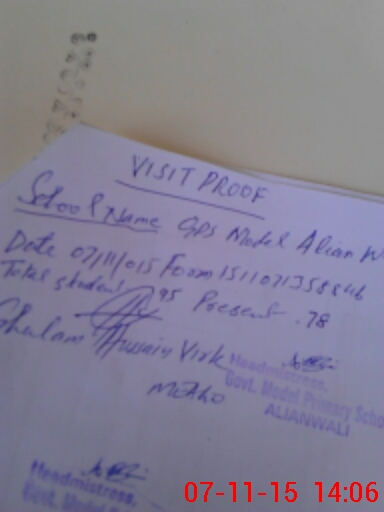 VISIT PROOF
School Name GPS Model Alian W
Date 07/11/015 Form 1511071358846
Total student 95 Present .78
Ghulam Hussain Virk
Headmistress,
Govt. Model Primary Scho
ALIANWALI
Headmistress,
Govt. Model
07-11-15 14:06